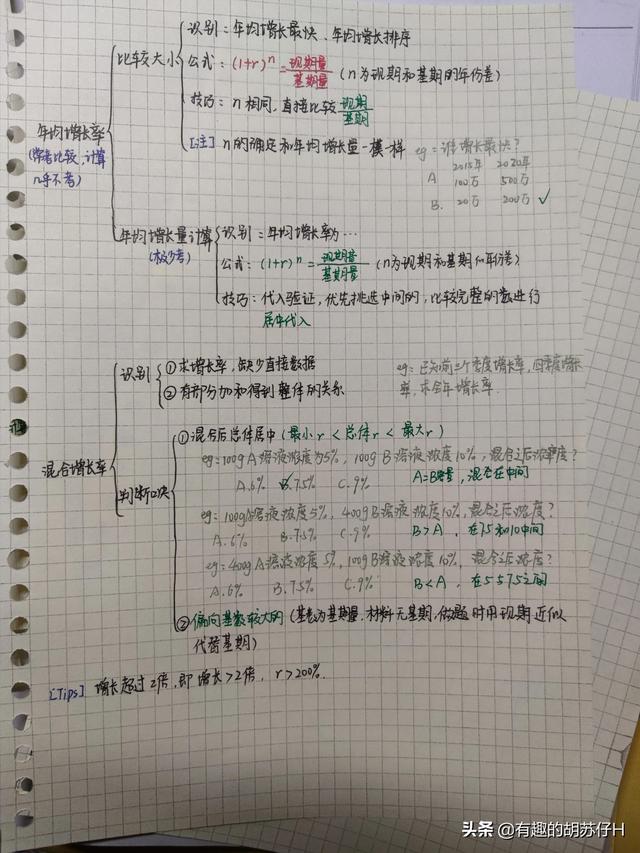 识别：年均增长最快、年均增长排序
比较大小
公式：(1+r)ⁿ=现期量/基期量 (n为现期和基期的年份差)
技巧：n相同，直接比较现期/基期
年均增长率
(常考比较，计算几乎不考)
[注] n的确定和年均增长量一模一样
eg：谁增长最快？
2015年 2020年
A 100万 500万
B. 20万 200万 ✓
年均增长量计算
(极少考)
识别：年均增长率为…
公式：(1+r)ⁿ=现期量/基期量 (n为现期和基期的年份差)
技巧：代入验证，优先挑选中间的，比较完整的数进行
居中代入
识别
①求增长率，缺少直接数据
②有部分加和得到整体的关系
eg：已知前三个季度增长率，四季度增长率，求全年增长率.
混合增长率
判断口诀
①混合后总体居中 (最小r < 总体r < 最大r)
eg：100g A溶液浓度为5%，100g B溶液浓度10%，混合之后浓度？
A.6% B.7.5% C.9% A=B溶量，混合在中间
eg：100gA溶液浓度5%，400g B溶液浓度10%，混合之后浓度？
A.6% B.7.5% C.9% B>A，在7.5和10中间
eg：400g A溶液浓度5%，100g B溶液浓度10%，混合之后浓度？
A.6% B.7.5% C.9% B<A，在5与7.5之间
②偏向基数较大的 (基数为基期量，材料无基期，做题时用现期近似
代替基期)
[Tips] 增长超过2倍，即增长>2倍，r>200%.
头条 @有趣的胡苏仔H